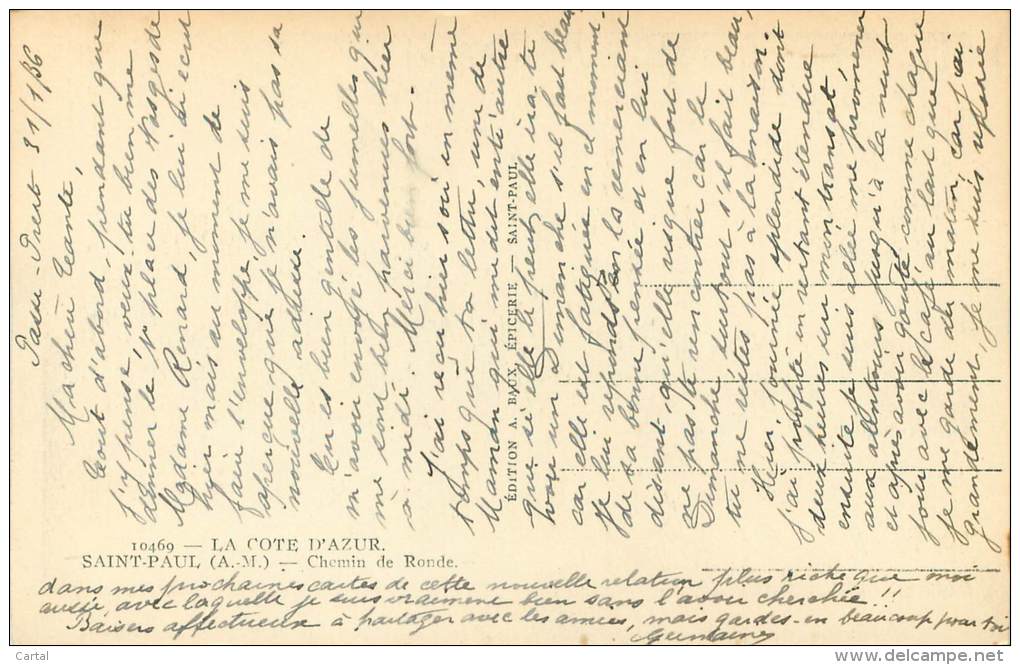 Passe-Prest 31/1/36
Ma chère Tante,
Tout d'abord, pendant que
j'y pense, veux-tu bien me
donner le n° place des Vosges de
Madame Renard, je lui ai écrit
hier mais au moment de
faire l'enveloppe, je me suis
aperçue que je n'avais pas sa
nouvelle adresse.
Tu es bien gentille de
m'avoir envoyé les jumelles qui
me sont bien parvenues hier
à midi. Merci bien fort.
J'ai reçu hier soir en même
temps que ta lettre, une de
Maman qui me dit entr'autre
que si elle le peut elle ira te
voir un Dimanche s'il fait beau
car elle est fatiguée en ce moment.
Je lui réponds en la remerciant
de sa bonne pensée et en lui
disant qu'elle risque fort de
ne pas te rencontrer car le
Dimanche surtout s'il fait beau,
tu ne restes pas à la maison.
Hier, journée splendide dont
j'ai profité en restant étendue
deux heures sur mon transat
ensuite je suis allée me promener
aux alentours jusqu'à la nuit
et après avoir goûté comme chaque
jour avec le café au lait que
je me garde du matin, car j'ai
grandement, je me suis reposée
ÉDITION A. BAUX, ÉPICERIE — SAINT-PAUL
10469 — LA COTE D'AZUR.
SAINT-PAUL (A.-M.) — Chemin de Ronde.
dans mes prochaines cartes de cette nouvelle relation plus riche que moi
aussi, avec laquelle je suis vraiment bien sans l'avoir cherchée !!
Baisers affectueux à partager avec les amies, mais gardes-en beaucoup pour toi
Germaine
Cartal
www.delcampe.net